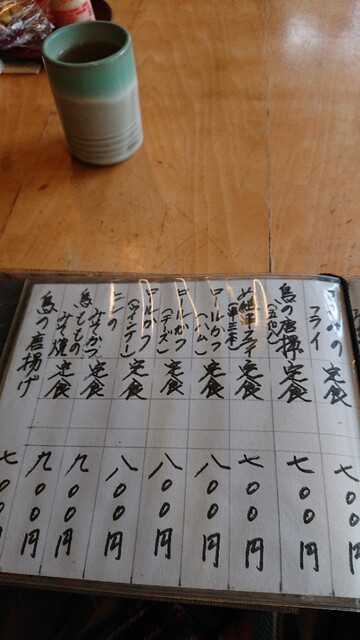 フライ 定食
鳥の唐揚 定食 七〇〇円
(五個入)
串フライ 定食 七〇〇円
(串三本)
ロールかつ 定食 八〇〇円
(ハム)
ロールかつ 定食 八〇〇円
(チーズ)
ロールかつ 定食 八〇〇円
(ウインナー)
みそかつ 定食 九〇〇円
鳥ももの
みそ焼 定食 九〇〇円
鳥の唐揚げ 七〇〇円